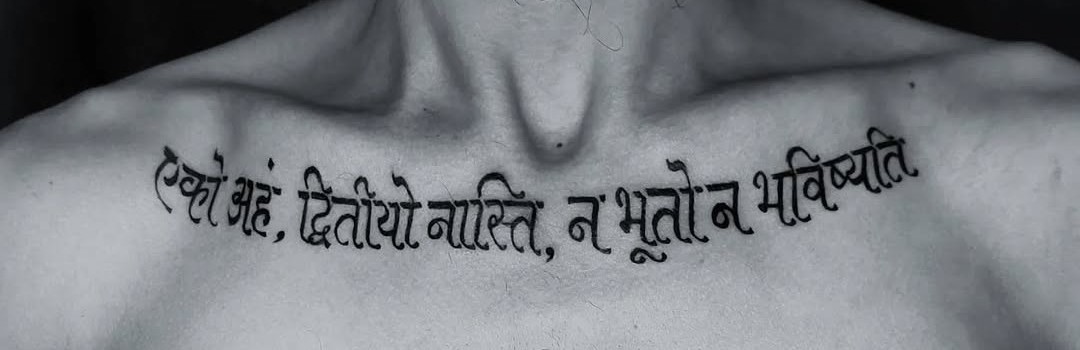 एको अहं, द्वितीयो नास्ति, न भूतो न भविष्यति